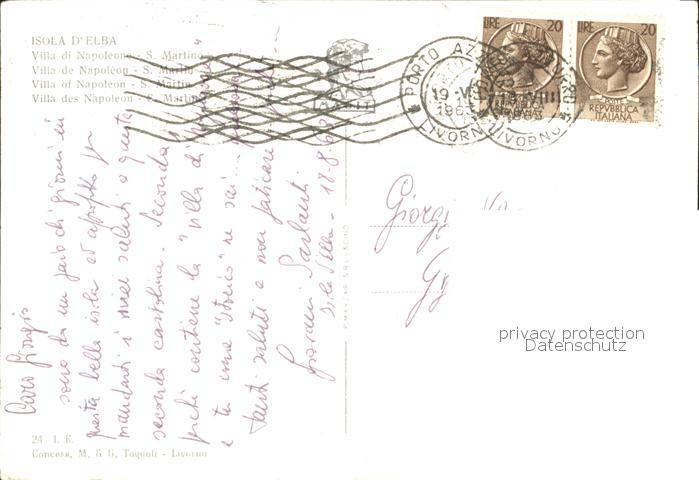 ISOLA D'ELBA
Villa di Napoleone - S. Martino
Villa de Napoléon - S. Martin
Villa of Napoleon - S. Martin
Villa des Napoleon - S. Martin
LIRE 20
LIRE 20
REPVBBLICA
ITALIANA
PORTO AZZ
19
196
LIVORNO
LIVORNO
Caro Giorgio
sono da un paio di giorni in
questa bella isola ed approfitto per
mandarti i miei saluti e questa
seconda cartolina. Seconda
perché contiene la "villa di Napoleone"
e tu come "storico" ne sai
tanti saluti e non faticare
Giovanni
Isola d'Elba - 18-8-
Giorgio
privacy protection
Datenschutz
24 - I. E.
Concess. M. & G. Tognoli - Livorno